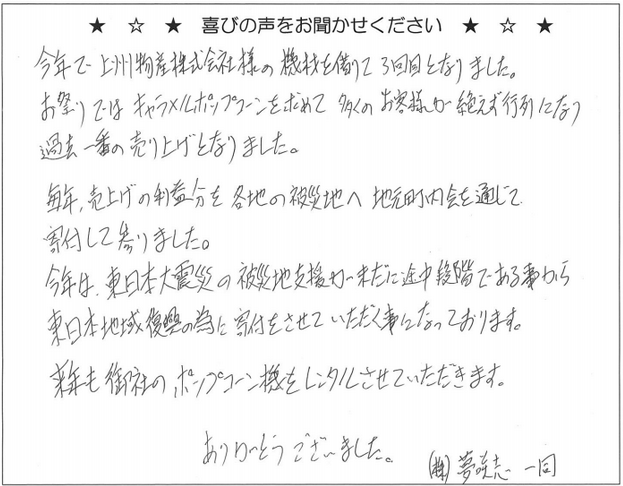 ★ ☆ ★ 喜びの声をお聞かせください ★ ☆ ★
今年で上州物産株式会社様の機材を借りて3回目となりました。
お祭りではキャラメルポップコーンを求めて多くのお客様が絶えず行列になり
過去一番の売り上げとなりました。
毎年、売上げの利益分を各地の被災地へ地元町内会を通じて
寄付して参りました。
今年は、東日本大震災の被災地支援がまだに途中段階である事から
東日本地域復興の為に寄付をさせていただく事になっております。
来年も御社のポップコーン機をレンタルさせていただきます。
ありがとうございました。
(株)夢咲志 一同